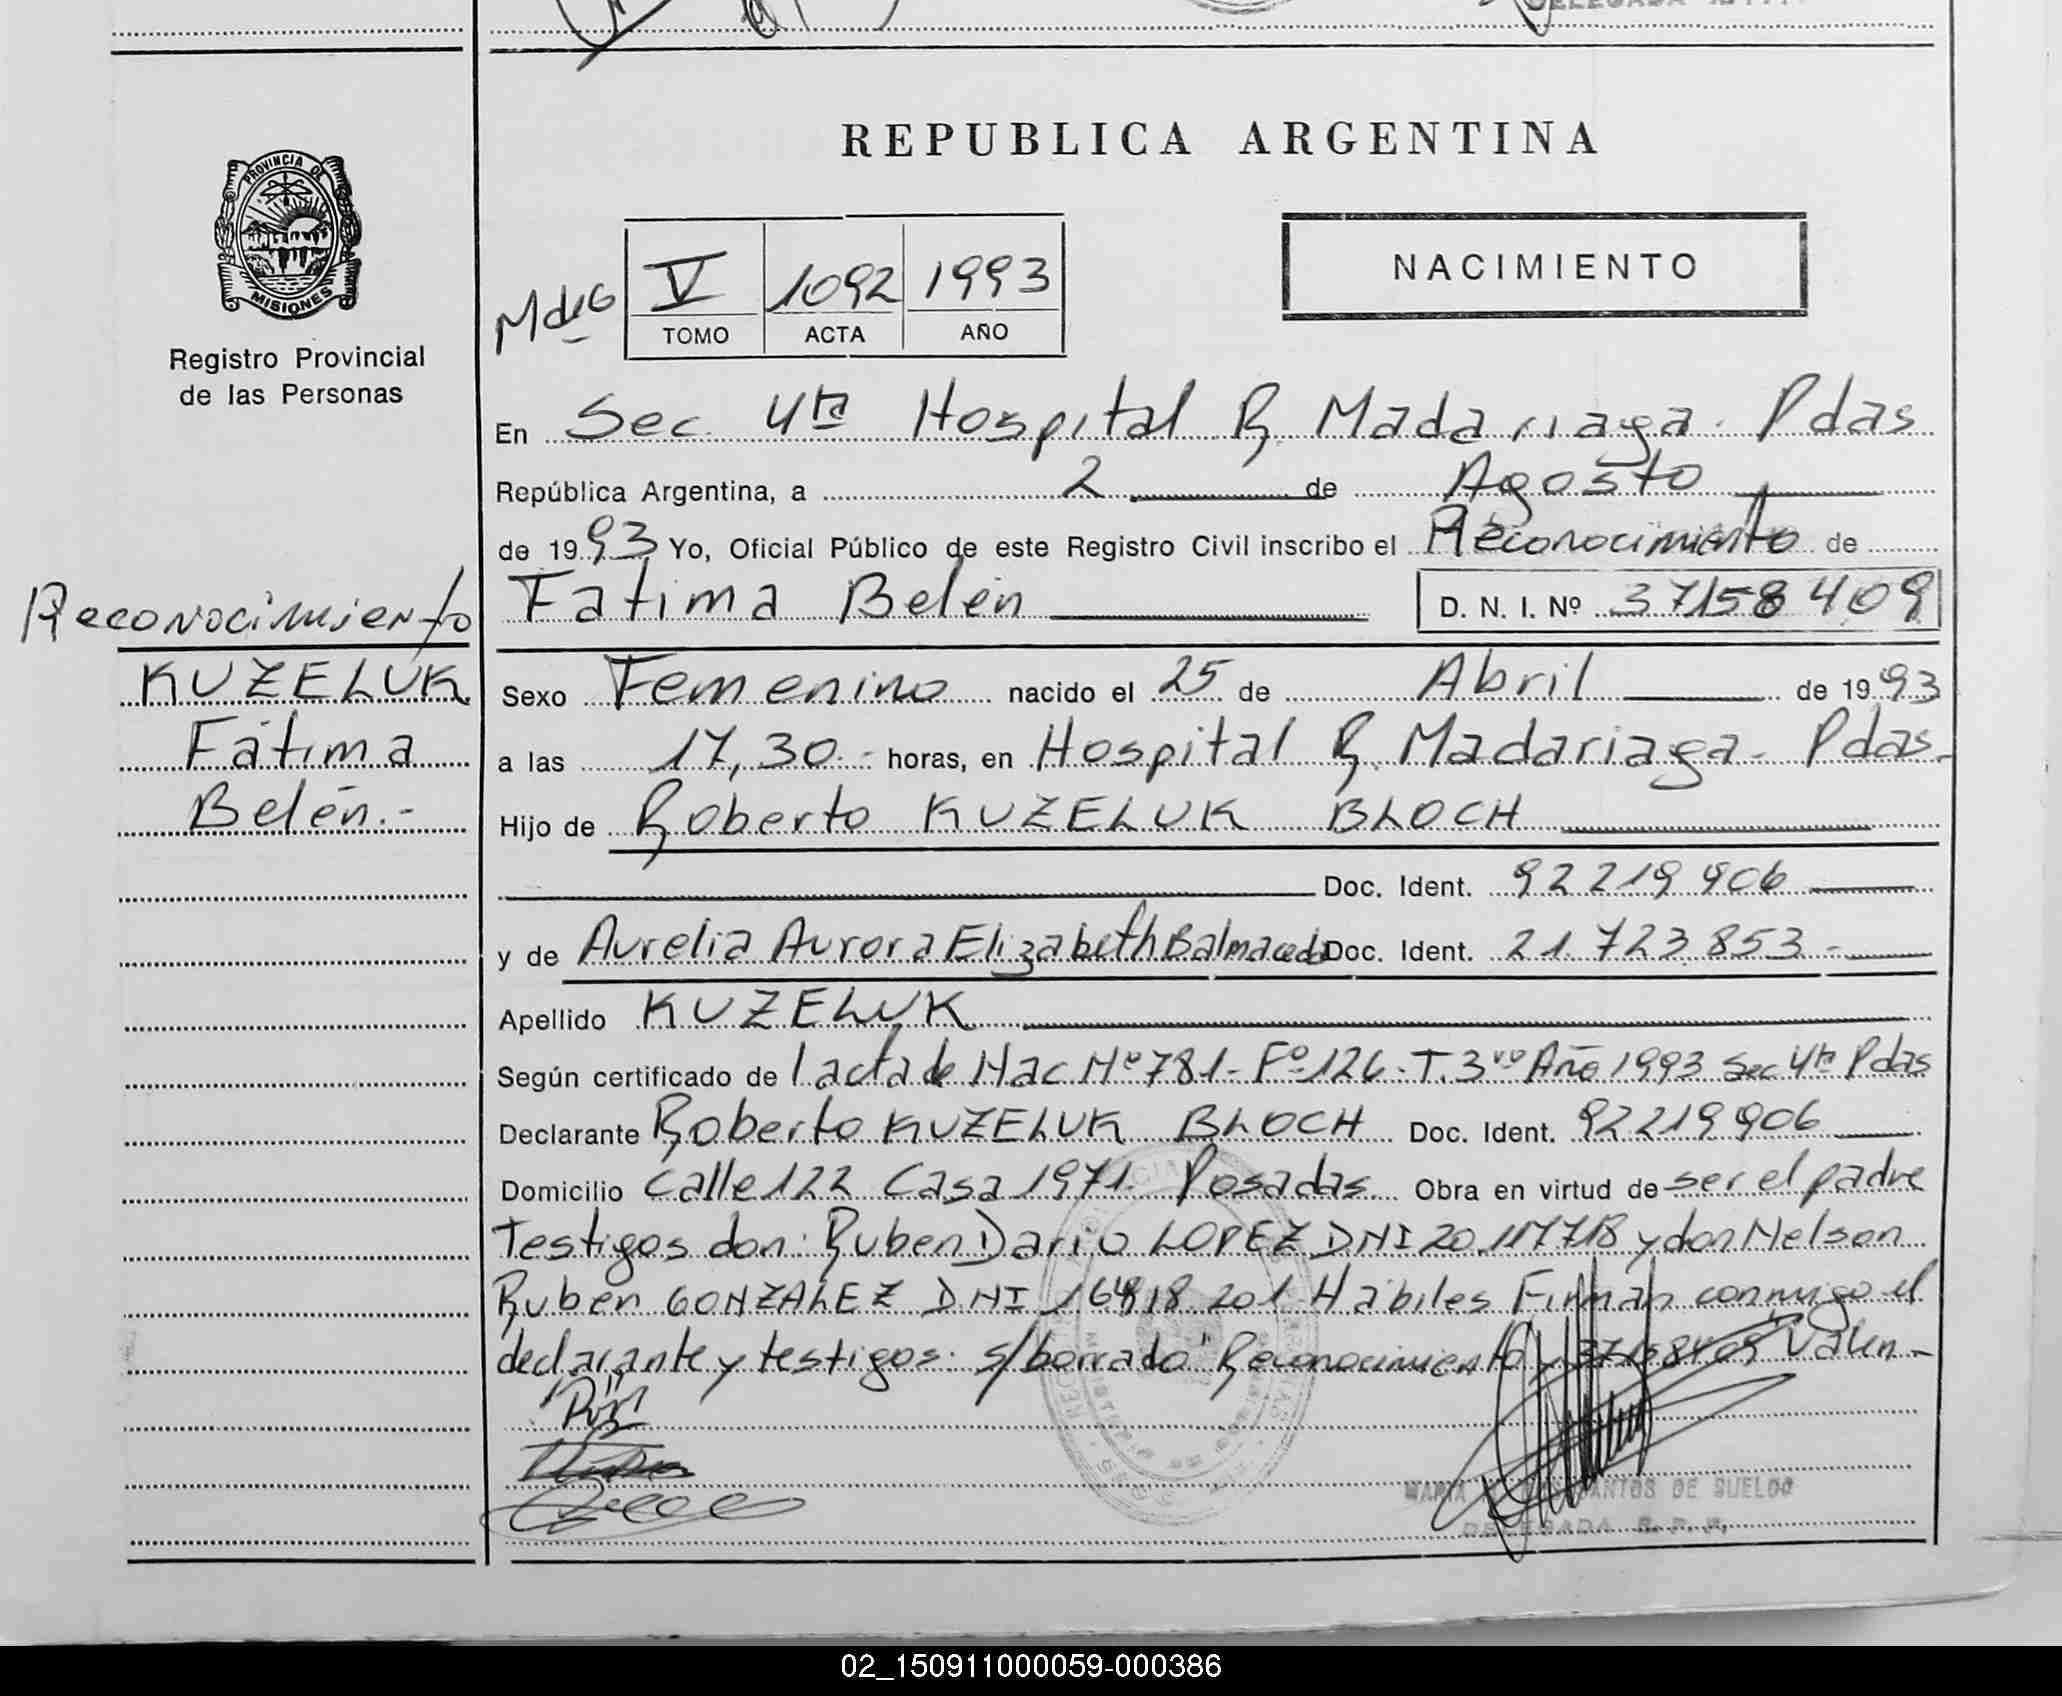 REPUBLICA ARGENTINA
PROVINCIA DE
MISIONES
Registro Provincial
de las Personas
V 1092 1993
TOMO ACTA AÑO
NACIMIENTO
En Sec. 4ta Hospital R. Madariaga. Pdas
República Argentina, a 2 de Agosto
de 1993 Yo, Oficial Público de este Registro Civil inscribo el Reconocimiento de
Fatima Belén D. N. I. Nº 37158409
Reconocimiento
KUZELUK
Fatima
Belén.-
Sexo Femenino nacido el 25 de Abril de 1993
a las 17,30.- horas, en Hospital R. Madariaga - Pdas.
Hijo de Roberto KUZELUK BLOCH
Doc. Ident. 92219906
y de Aurelia Aurora Elizabeth Balmaceda Doc. Ident. 21.723.853.-
Apellido KUZELUK
Según certificado de 1 acta de Nac. Nº 781- Fº 126-T. 3ro Año 1993 Sec 4ta Pdas
Declarante Roberto KUZELUK BLOCH Doc. Ident. 92219906
Domicilio Calle 122 Casa 1971. Posadas Obra en virtud de ser el padre
Testigos don: Ruben Dario LOPEZ DNI 20.117718 y don Nelson
Ruben GONZALEZ DNI 16818 201 Habiles Firman conmigo el
declarante y testigos. s/borrado "Reconocimiento y 37158409 Valen-
DE LOS SANTOS DE SUELDO
DELEGADA R. P. P.
02_150911000059-000386